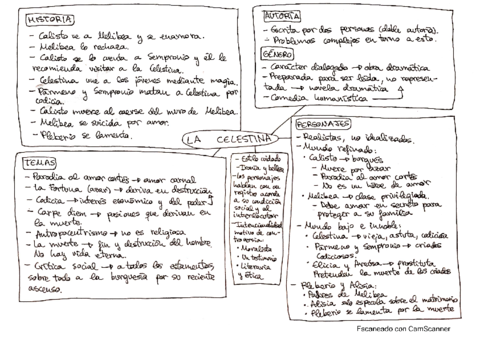 HISTORIA
- Calisto ve a Melibea y se enamora.
- Melibea lo rechaza.
- Calisto se lo cuenta a Sempronio y él le
recomienda visitar a la Celestina.
- Celestina une a los jóvenes mediante magia.
- Pármeno y Sempronio matan a Celestina por
codicia.
- Calisto muere al caerse del muro de Melibea
- Melibea se suicida por amor.
- Pleberio se lamenta.
AUTORÍA
- Escrita por dos personas (doble autoría).
- Problemas complejos en torno a esto.
GÉNERO
- Carácter dialogado → obra dramática
- Preparada para ser leída, no represen-
tada → novela dramática
- Comedia humanística
LA CELESTINA
TEMAS
- Parodia al amor cortés → amor carnal
- La Fortuna (azar) → deriva en destrucción
- Codicia → interés económico y del poder
- Carpe diem → pasiones que derivan en
la muerte.
- Antropocentrismo → no es religiosa
- La muerte → fin y destrucción del hombre.
No hay vida eterna.
- Crítica social → a todos los estamentos,
sobre todo a la burguesía por su reciente
ascenso.
- Estilo cuidado
- Ironía y belleza
- Los personajes
hablan con un
registro acorde
a su condición
social y al
interlocutor
- Intencionalidad
motivo de con-
troversia:
- Moralista
- Un testimonio
- Literaria
y ética
PERSONAJES
- Realistas, no idealizados.
- Mundo refinado:
• Calisto → burgués
- Muere por azar
- Parodia al amor cortés
- No es un héroe de amor
• Melibea → clase privilegiada.
- Debe amar en secreto para
proteger a su familia
- Mundo bajo e innoble:
• Celestina → vieja, astuta, codiciosa
• Pármeno y Sempronio → criados
codiciosos.
• Elicia y Areúsa → prostituta
Pretenden la muerte de los criados
- Pleberio y Alisa:
• Padres de Melibea
• Alisa solo especula sobre el matrimonio
• Pleberio se lamenta por la muerte
Escaneado con CamScanner